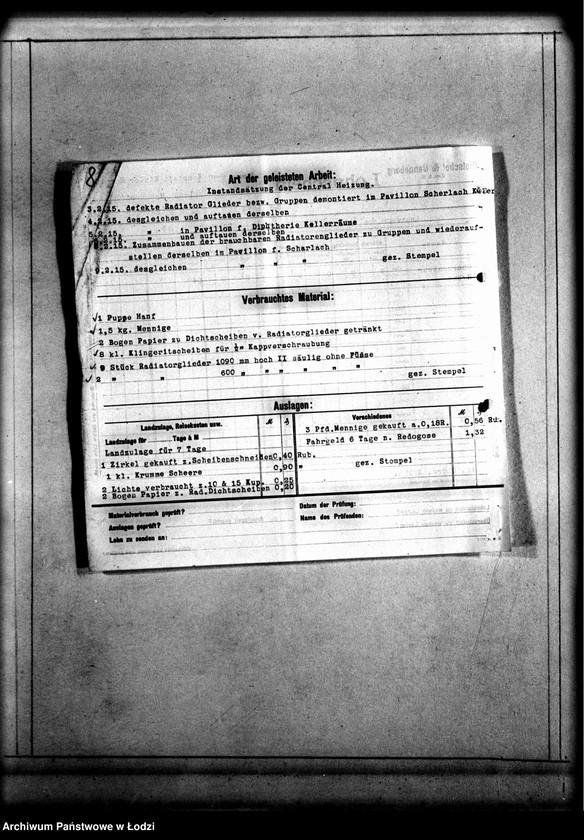 8
Art der geleisteten Arbeit:
Instandsätzung der Central Heizung.
3.2.15. defekte Radiator Glieder bezw. Gruppen demontiert im Pavillon Scherlach Keller
4.2.15. desgleichen und auftauen derselben
5.2.15. " " in Pavillon f. Diphtherie Kellerräume
und auftauen derselben
8.2.15. Zusammenbauen der brauchbaren Radiatorenglieder zu Gruppen und wiederauf-
stellen derselben im Pavillon f. Scharlach
9.2.15. desgleichen " " " gez. Stempel
Verbrauchtes Material:
1 Puppe Hanf
1,5 kg. Mennige
2 Bogen Papier zu Dichtscheiben v. Radiatorglieder getränkt
8 kl. Klingeritscheiben für ¼" Kappverschraubung
9 Stück Radiatorglieder 1090 mm hoch II säulig ohne Füsse
2 " " 600 " " " " " gez. Stempel
Auslagen:
Landzulage, Reisekosten usw.
Landzulage für Tage à M
Landzulage für 7 Tage
1 Zirkel gekauft z.Scheibenschneiden 0,40 Rub.
1 kl. Krumme Scheere 0,90 "
2 Lichte verbraucht z.10 & 15 Kup. 0,25
2 Bogen Papier z. Rad.Dichtscheiben 0,20
Verschiedenes
3 Pfd.Mennige gekauft a.0,18R. 0,56 Ru.
Fahrgeld 6 Tage n. Redogose 1,32
gez. Stempel
Materialverbrauch geprüft?
Auslagen geprüft?
Lohn zu senden an:
Datum der Prüfung:
Name des Prüfenden:
Archiwum Państwowe w Łodzi